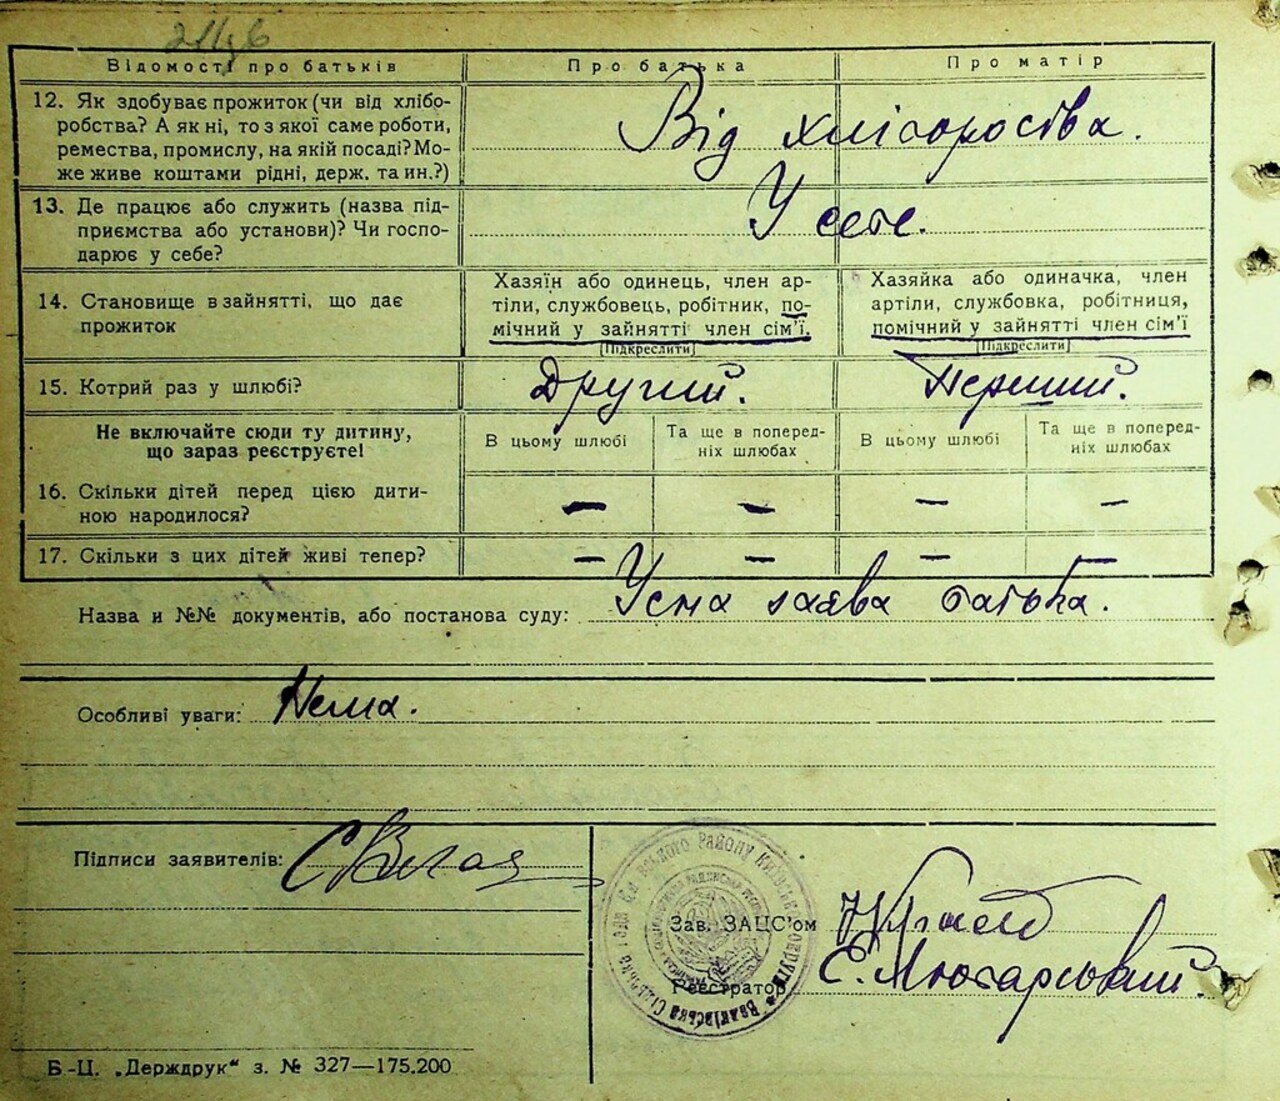 Відомості про батьків
Про батька
Про матір
12. Як здобуває прожиток (чи від хлібо-
робства? А як ні, то з якої саме роботи,
ремества, промислу, на якій посаді? Мо-
же живе коштами рідні, держ. та ин.?)
Від хліборобства.
13. Де працює або служить (назва під-
приємства або установи)? Чи госпо-
дарює у себе?
У себе.
14. Становище в зайнятті, що дає
прожиток
Хазяїн або одинець, член ар-
тіли, службовець, робітник, по-
мічний у зайнятті член сім'ї.
(Підкреслити)
Хазяйка або одиначка, член
артіли, службовка, робітниця,
помічний у зайнятті член сім'ї
(Підкреслити)
15. Котрий раз у шлюбі?
Другий.
Перший.
Не включайте сюди ту дитину,
що зараз реєструєте!
В цьому шлюбі
Та ще в поперед-
ніх шлюбах
В цьому шлюбі
Та ще в поперед-
ніх шлюбах
16. Скільки дітей перед цією дити-
ною народилося?
— — — —
17. Скільки з цих дітей живі тепер?
— — — —
Назва и №№ документів, або постанова суду: Усна заява батька.
Особливі уваги: Нема.
Підписи заявителів:
Зав. ЗАЦС'ом
Реєстратор
Б.-Ц. „Держдрук“ з. № 327—175.200